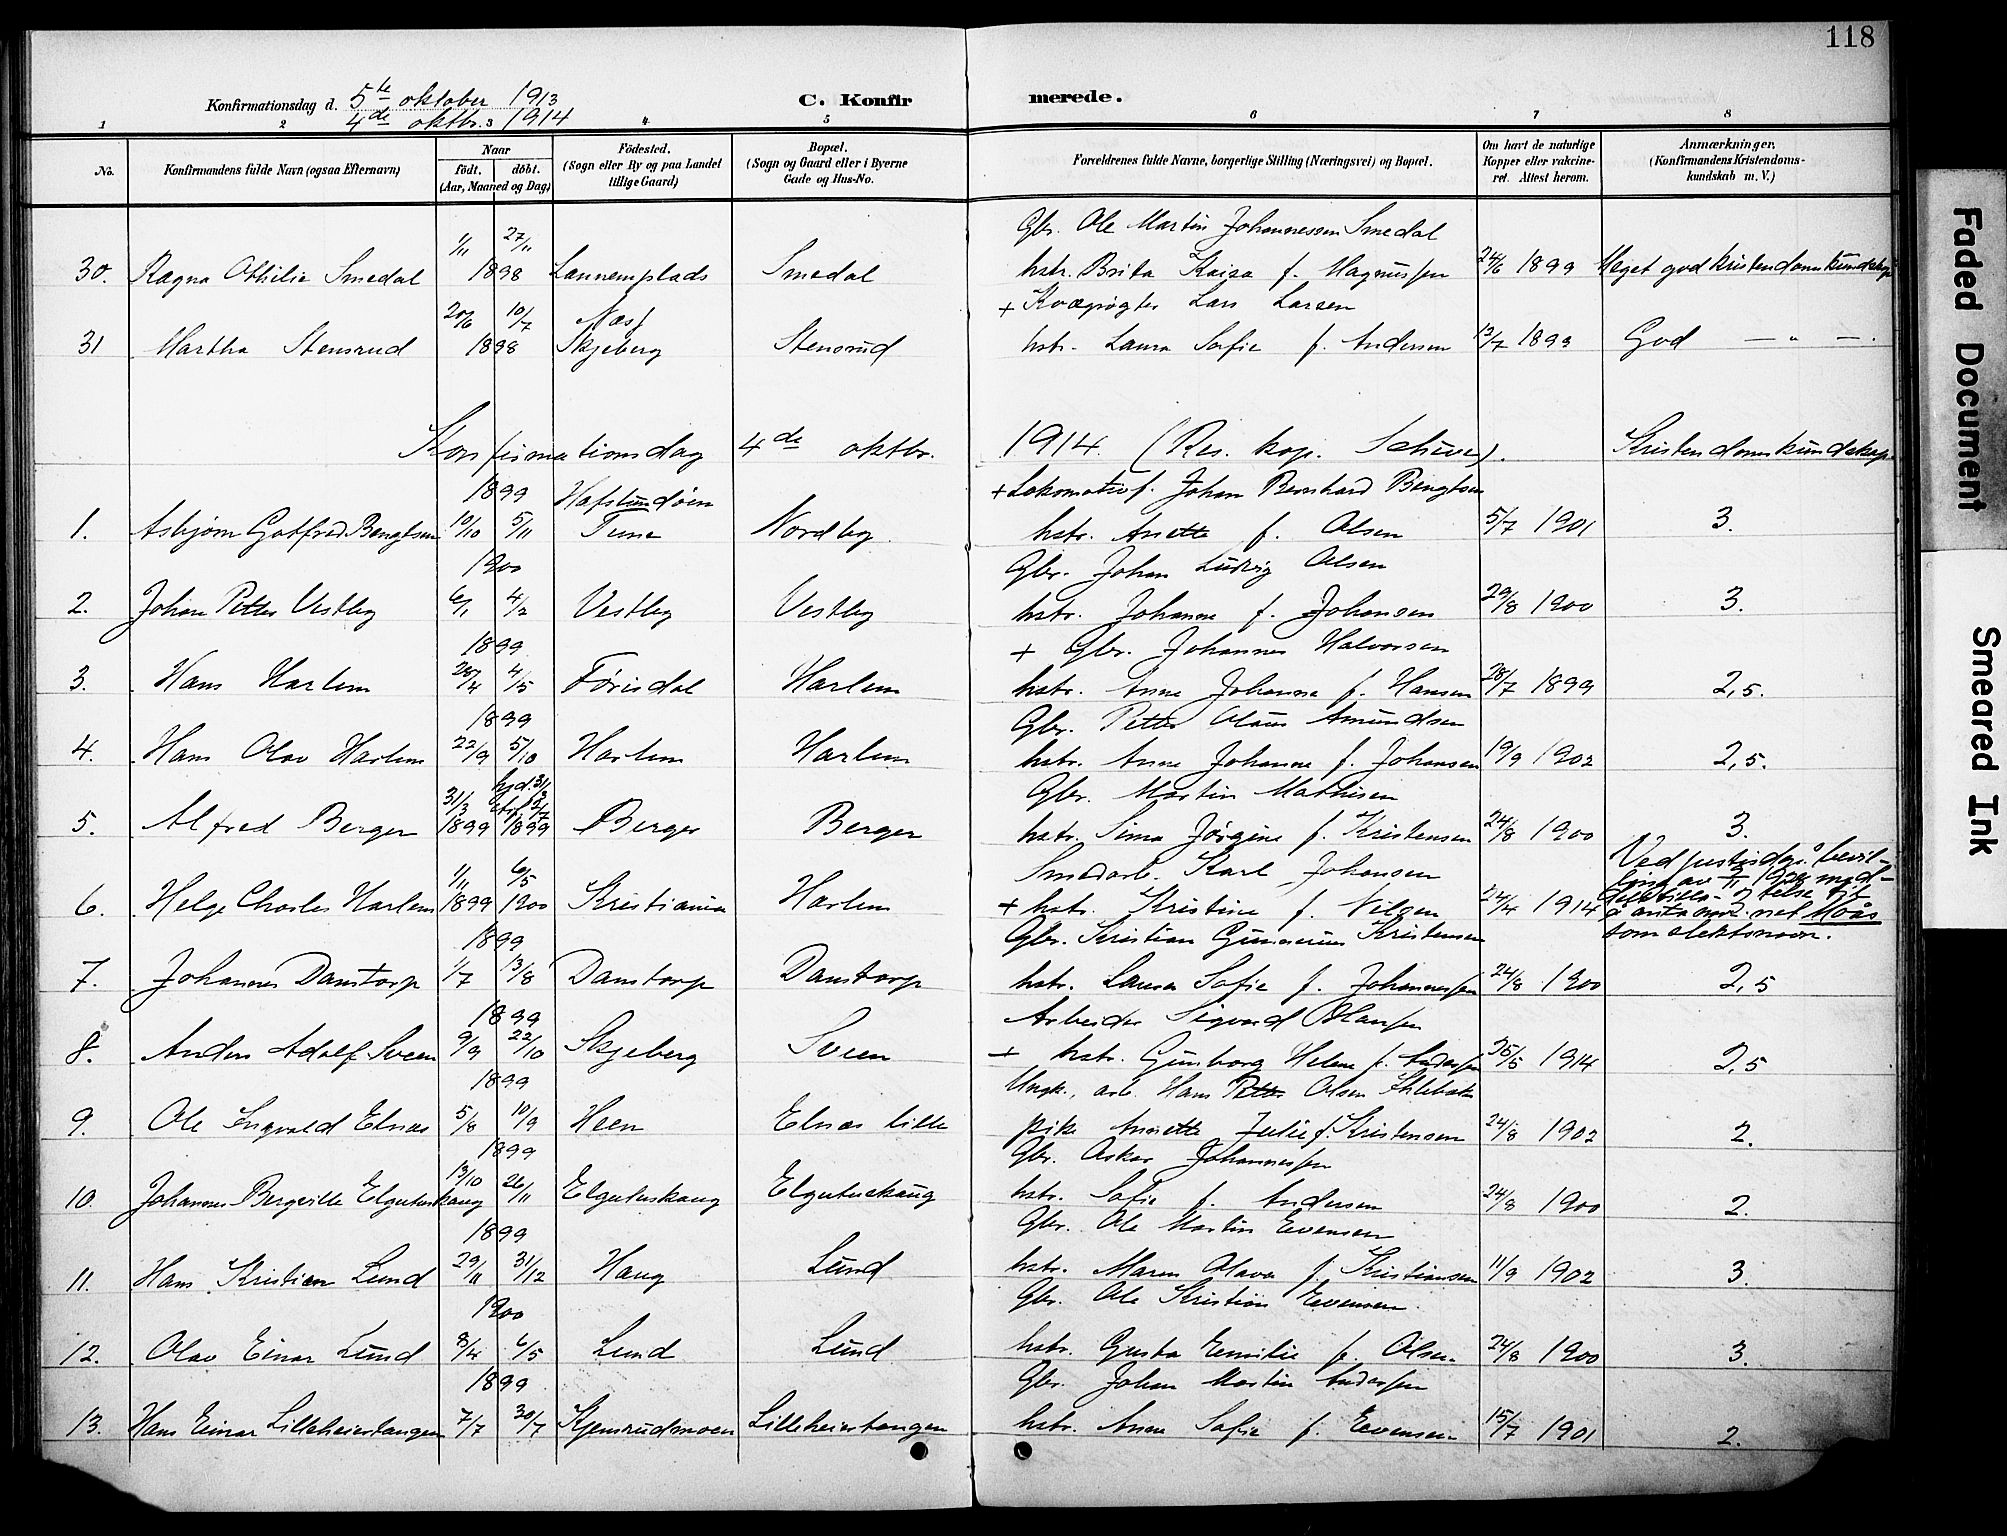 118
Konfirmationsdag d. 5te oktober 1913
4de oktbr. 1914
C. Konfirmerede.
1 2 3 4 5 6 7 8
No. Konfirmandens fulde Navn (ogsaa Efternavn) Naar født. døbt. (Aar, Maaned og Dag) Fødested. (Sogn eller By og paa Landet tillige Gaard) Bopæl. (Sogn og Gaard eller i Byerne Gade og Hus-No. Forældrenes fulde Navne, borgerlige Stilling (Næringsvei) og Bopæl. Om havt de naturlige Kopper eller vakcineret. Attest herom. Anmærkninger. (Konfirmandens Kristendomskundskab m. V.)
1/11 27/11 Gbr. Ole Martin Johannessen Smedal
30. Ragna Othilie Smedal 1898 Lannemplads Smedal hstr. Brita Kaisa f. Magnussen 24/6 1899 Meget god kristendomskundskap
20/6 10/7 Næs + Kvægrøgter Lars Larsen
31 Martha Stensrud 1898 Skjeberg Stensrud hstr. Laura Sofie f. Andersen 13/7 1899 God — " —.
Konfirmationsdag 4de oktbr. 1914. (Res. kap. Schive). Kristendomskundskap.
1899 Hafslundsøen + Lokomotivf. Johan Bernhard Bengtsen
1. Asbjørn Gotfred Bengtsen 10/10 5/11 Tune Nordby hstr. Anette f. Olsen 5/7 1901 3.
1900 Gbr. Johan Ludvig Olsen
2. Johan Petter Vestby 6/1 4/2 Vestby Vestby hstr. Johanne f. Johansen 29/8 1900 3.
1899 + Gbr. Johannes Halvorsen
3. Hans Harlem 25/4 4/5 Førisdal Harlem hstr. Anne Johanne f. Hansen 28/7 1899 2,5.
1899 Gbr. Petter Olaus Amundsen
4. Hans Olav Harlem 22/9 5/10 Harlem Harlem hstr. Anne Johanne f. Johansen 19/9 1902 2,5.
31/3 hjd. 31/3 Gbr. Martin Mathisen
5. Alfred Berger 1899 1899 Berger Berger hstr. Sina Jørgine f. Kristensen 24/8 1900 3.
1/11 6/5 Smedarb. Karl Johansen Ved justisdep. bevil-
6. Helge Charles Harlem 1899 1900 Kristiania Harlem + hstr. Kristine f. Nilsen 24/4 1914
1899 Gbr. Kristian Gunnerius Kristensen som slektsnavn.
7. Johannes Damtorp 1/7 13/8 Damtorp Damtorp hstr. Laura Sofie f. Johannessen 24/8 1900 2,5
1899 Arbeider Sigvard Olausen
8. Anders Adolf Sveen 9/9 22/10 Skjeberg Sveen + hstr. Gunborg Helene f. Andersen 25/5 1914 2,5
1899 Ungk., arb. Hans Petter Olsen
9. Ole Ingvald Elnæs 5/8 10/9 Heen Elnæs lille pike Annette Julie f. Kristensen 24/8 1902 2.
1899 Gbr. Oskar Johannessen
10. Johannes Bergville Elgutuskaug 13/10 26/11 Elgutuskaug Elgutuskaug hstr. Sofie f. Andersen 24/8 1900 2.
1899 Gbr. Ole Martin Evensen
11. Hans Kristian Lund 29/11 31/12 Haug Lund hstr. Maren Olava f. Kristiansen 11/9 1902 3.
1900 Gbr. Ole Kristian Evensen
12. Olav Einar Lund 8/4 6/5 Lund Lund hstr. Gusta Emilie f. Olsen 24/8 1900 3.
1899 Gbr. Johan Martin Andersen
13. Hans Einar Lilleheiertangen 7/7 30/7 Kjensrudmoen Lilleheiertangen hstr. Anne Sofie f. Evensen 15/7 1901 2.
Faded Document
Smeared Ink